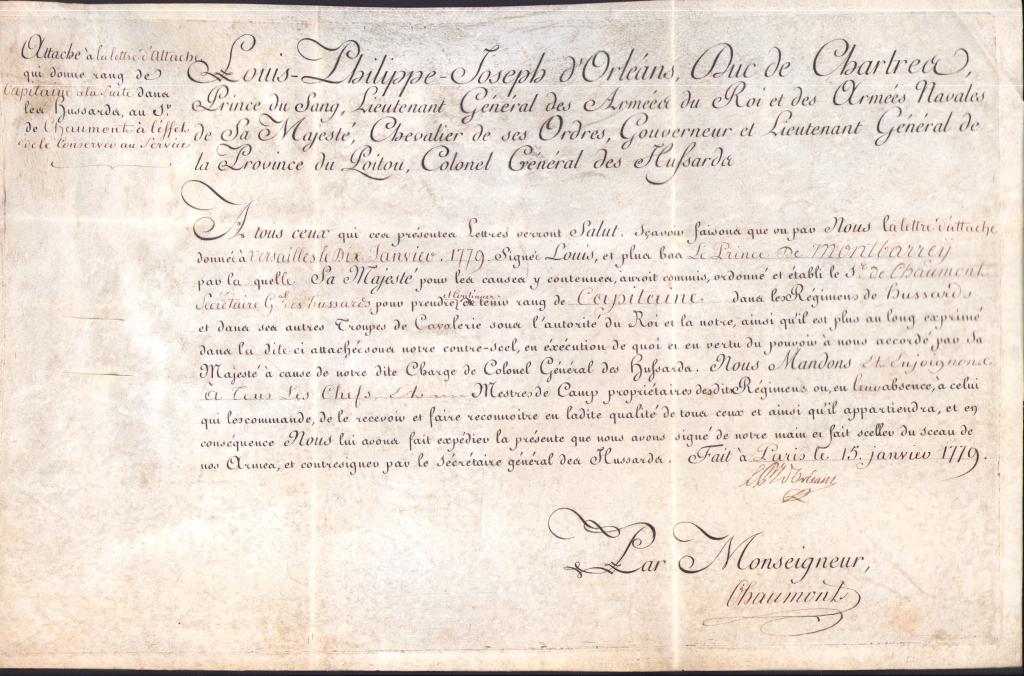 Attache à la lettre d'Attache
qui donne rang de
Capitaine à la Suite dans
les Hussards, au Sr.
de Chaumont à l'effet
de le Conserver au Service
Louis-Philippe-Joseph d'Orléans, Duc de Chartres,
Prince du Sang, Lieutenant Général des Armées du Roi et des Armées Navales
de Sa Majesté, Chevalier de ses Ordres, Gouverneur et Lieutenant Général de
la Province du Poitou, Colonel Général des Hussards
A tous ceux qui ces présentes Lettres verront Salut. Sçavoir faisons que vu par Nous la lettre d'attache
donnée à Versailles le Dix Janvier. 1779. Signée Louis, et plus bas Le Prince De Montbarrey
par la quelle Sa Majesté pour les causes y contenues, auroit commis, ordonné et établi le Sr. de Chaumont
Secrétaire Gal. des hussards, pour prendre et Continuer de tenir rang de Capitaine dans les Régimens de Hussards
et dans ses autres Troupes de Cavalerie sous l'autorité du Roi et la notre, ainsi qu'il est plus au long exprimé
dans la dite ci attachée sous notre contre-scel, en exécution de quoi et en vertu du pouvoir à nous accordé par Sa
Majesté à cause de notre dite Charge de Colonel Général des Hussards. Nous Mandons Et Enjoignons
à Tous Les Chefs Et Mestres de Camp propriétaires desdits Régimens ou, en leur absence, à celui
qui les commande, de le recevoir et faire reconnoitre en ladite qualité de tous ceux et ainsi qu'il appartiendra, et en
conséquence Nous lui avons fait expédier la présente que nous avons signé de notre main et fait sceller du sceau de
nos Armes, et contresigner par le Sécrétaire général des Hussards. Fait à Paris le 15. janvier 1779.
d'Orleans
Par Monseigneur,
Chaumont